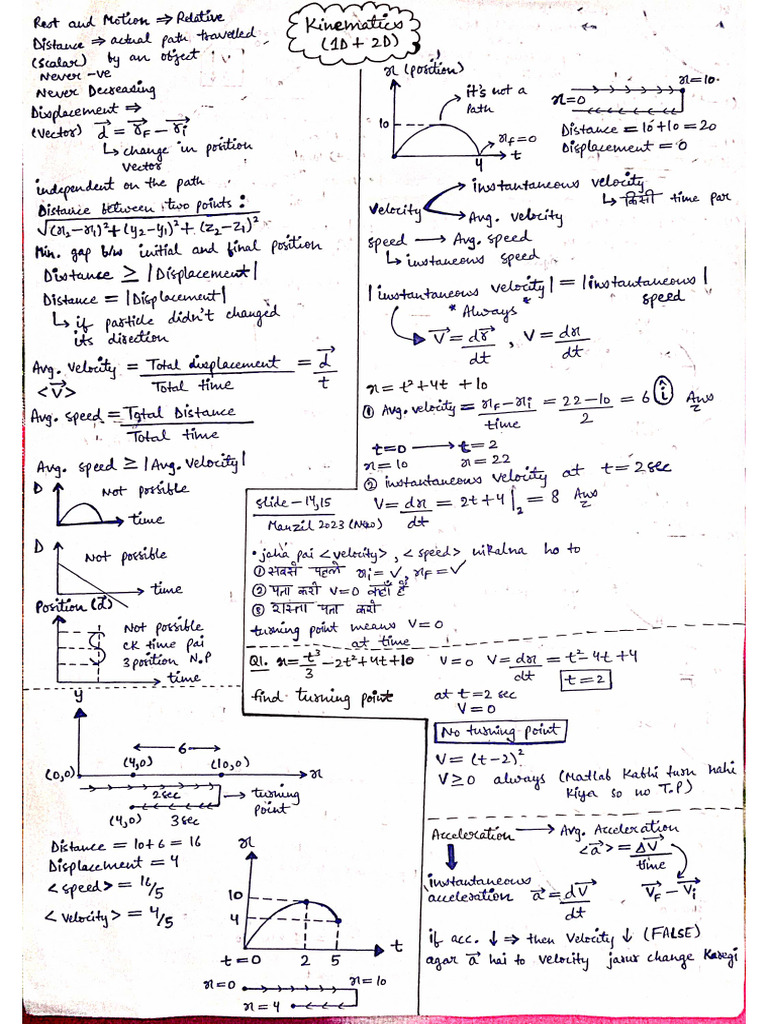 Kinematics
(1D + 2D)
Rest and Motion ⇒ Relative
Distance ⇒ actual path travelled
(scalar) by an object
Never -ve
Never Decreasing
Displacement ⇒
(vector) d⃗ = r⃗_F − r⃗_i
↳ change in position
vector
independent on the path
Distance between two points :
√(x₂-x₁)²+(y₂-y₁)²+(z₂-z₁)²
Min. gap b/w initial and final position
Distance ≥ |Displacement|
Distance = |Displacement|
↳ if particle didn't changed
its direction
Avg. velocity = Total displacement / Total time = d⃗ / t
<V⃗>
Avg. speed = Total Distance / Total time
Avg. speed ≥ |Avg. velocity|
D
Not possible
time
D
Not possible
time
Position (d⃗)
Not possible
ek time pai
3 position N.P
time
y
6
(0,0) (4,0) (10,0) x
2sec → turning
point
(4,0) 3sec
Distance = 10+6 = 16
Displacement = 4
<speed> = 16/5
<velocity> = 4/5
x
10
4
t=0 2 5 t
x=0 x=10
x=4
x (position)
it's not a
path
10
x_F=0
4 t
x=10
x=0
Distance = 10+10 = 20
Displacement = 0
velocity → instantaneous velocity
↳ किसी time par
→ Avg. velocity
speed → Avg. speed
↳ instaneous speed
|instantaneous velocity| = |instantaneous| speed
* Always *
V⃗ = dr⃗/dt , V = dx/dt
x = t²+4t +10
① Avg. velocity = x_F−x_i / time = 22−10 / 2 = 6 î Ans
t=0 → t=2
x=10 x=22
② instantaneous velocity at t=2sec
V = dx/dt = 2t+4|₂ = 8 Ans
slide - 14,15
Manzil 2023 (NEO)
• jaha pai <velocity>, <speed> nikalna ho to
① सबसे पहले x_i = ✓, x_F = ✓
② पता करो V=0 कहाँ है
③ रास्ता पता करो
turning point means V=0
at time
Q1. x = t³/3 − 2t² + 4t + 10
find turning point
V=0 V = dx/dt = t²−4t+4
t=2
at t=2 sec
V=0
No turning point
V = (t−2)²
V≥0 always (Matlab Kabhi turn nahi
Kiya so no T.P)
Acceleration → Avg. Acceleration
<a⃗> = ΔV⃗ / time
V⃗_F − V⃗_i
instantaneous
acceleration a⃗ = dV⃗/dt
if acc. ↓ ⇒ then velocity ↓ (FALSE)
agar a⃗ hai to velocity jarur change Karegi